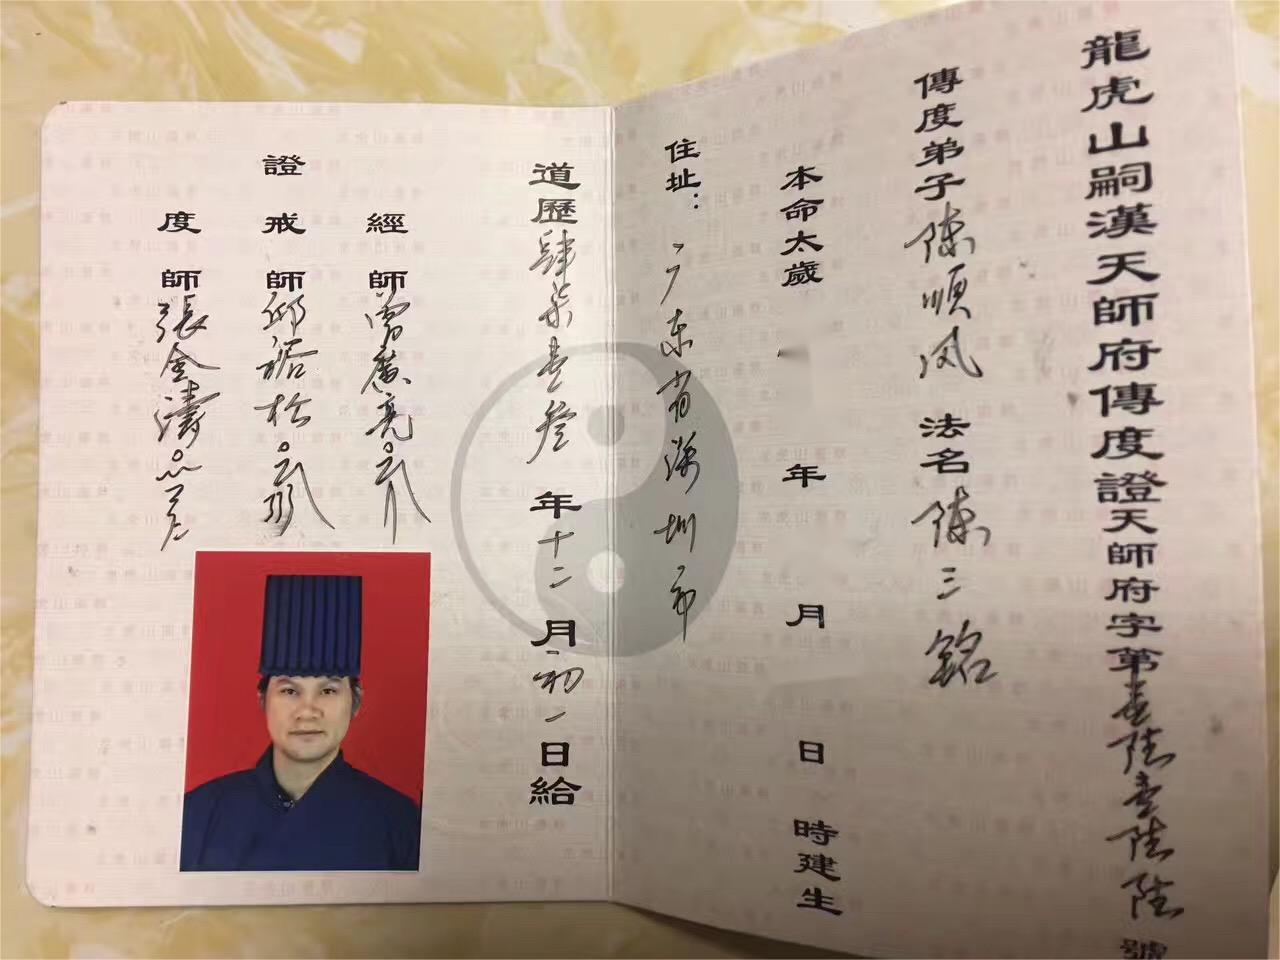 龍虎山嗣漢天師府傳度證天師府字第壹陸壹陸陸號
傳度弟子陳順风 法名陳三銘
本命太歲 年 月 日 時建生
住址：广东省深圳市
道歷肆柒壹叄年十二月初一日給
經師曾廣亮
證戒師邱裕松
度師張金濤